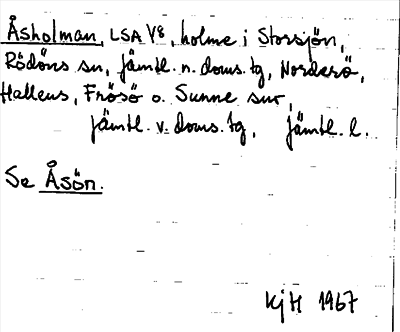 Åsholman, LSA V8, holme i Storsjön,
Rödöns sn, Jämtl. n. doms. tg, Norderö,
Hallens, Frösö o. Sunne snr,
Jämtl. v. doms. tg, Jämtl. l.
Se Åsön.
KjH 1967